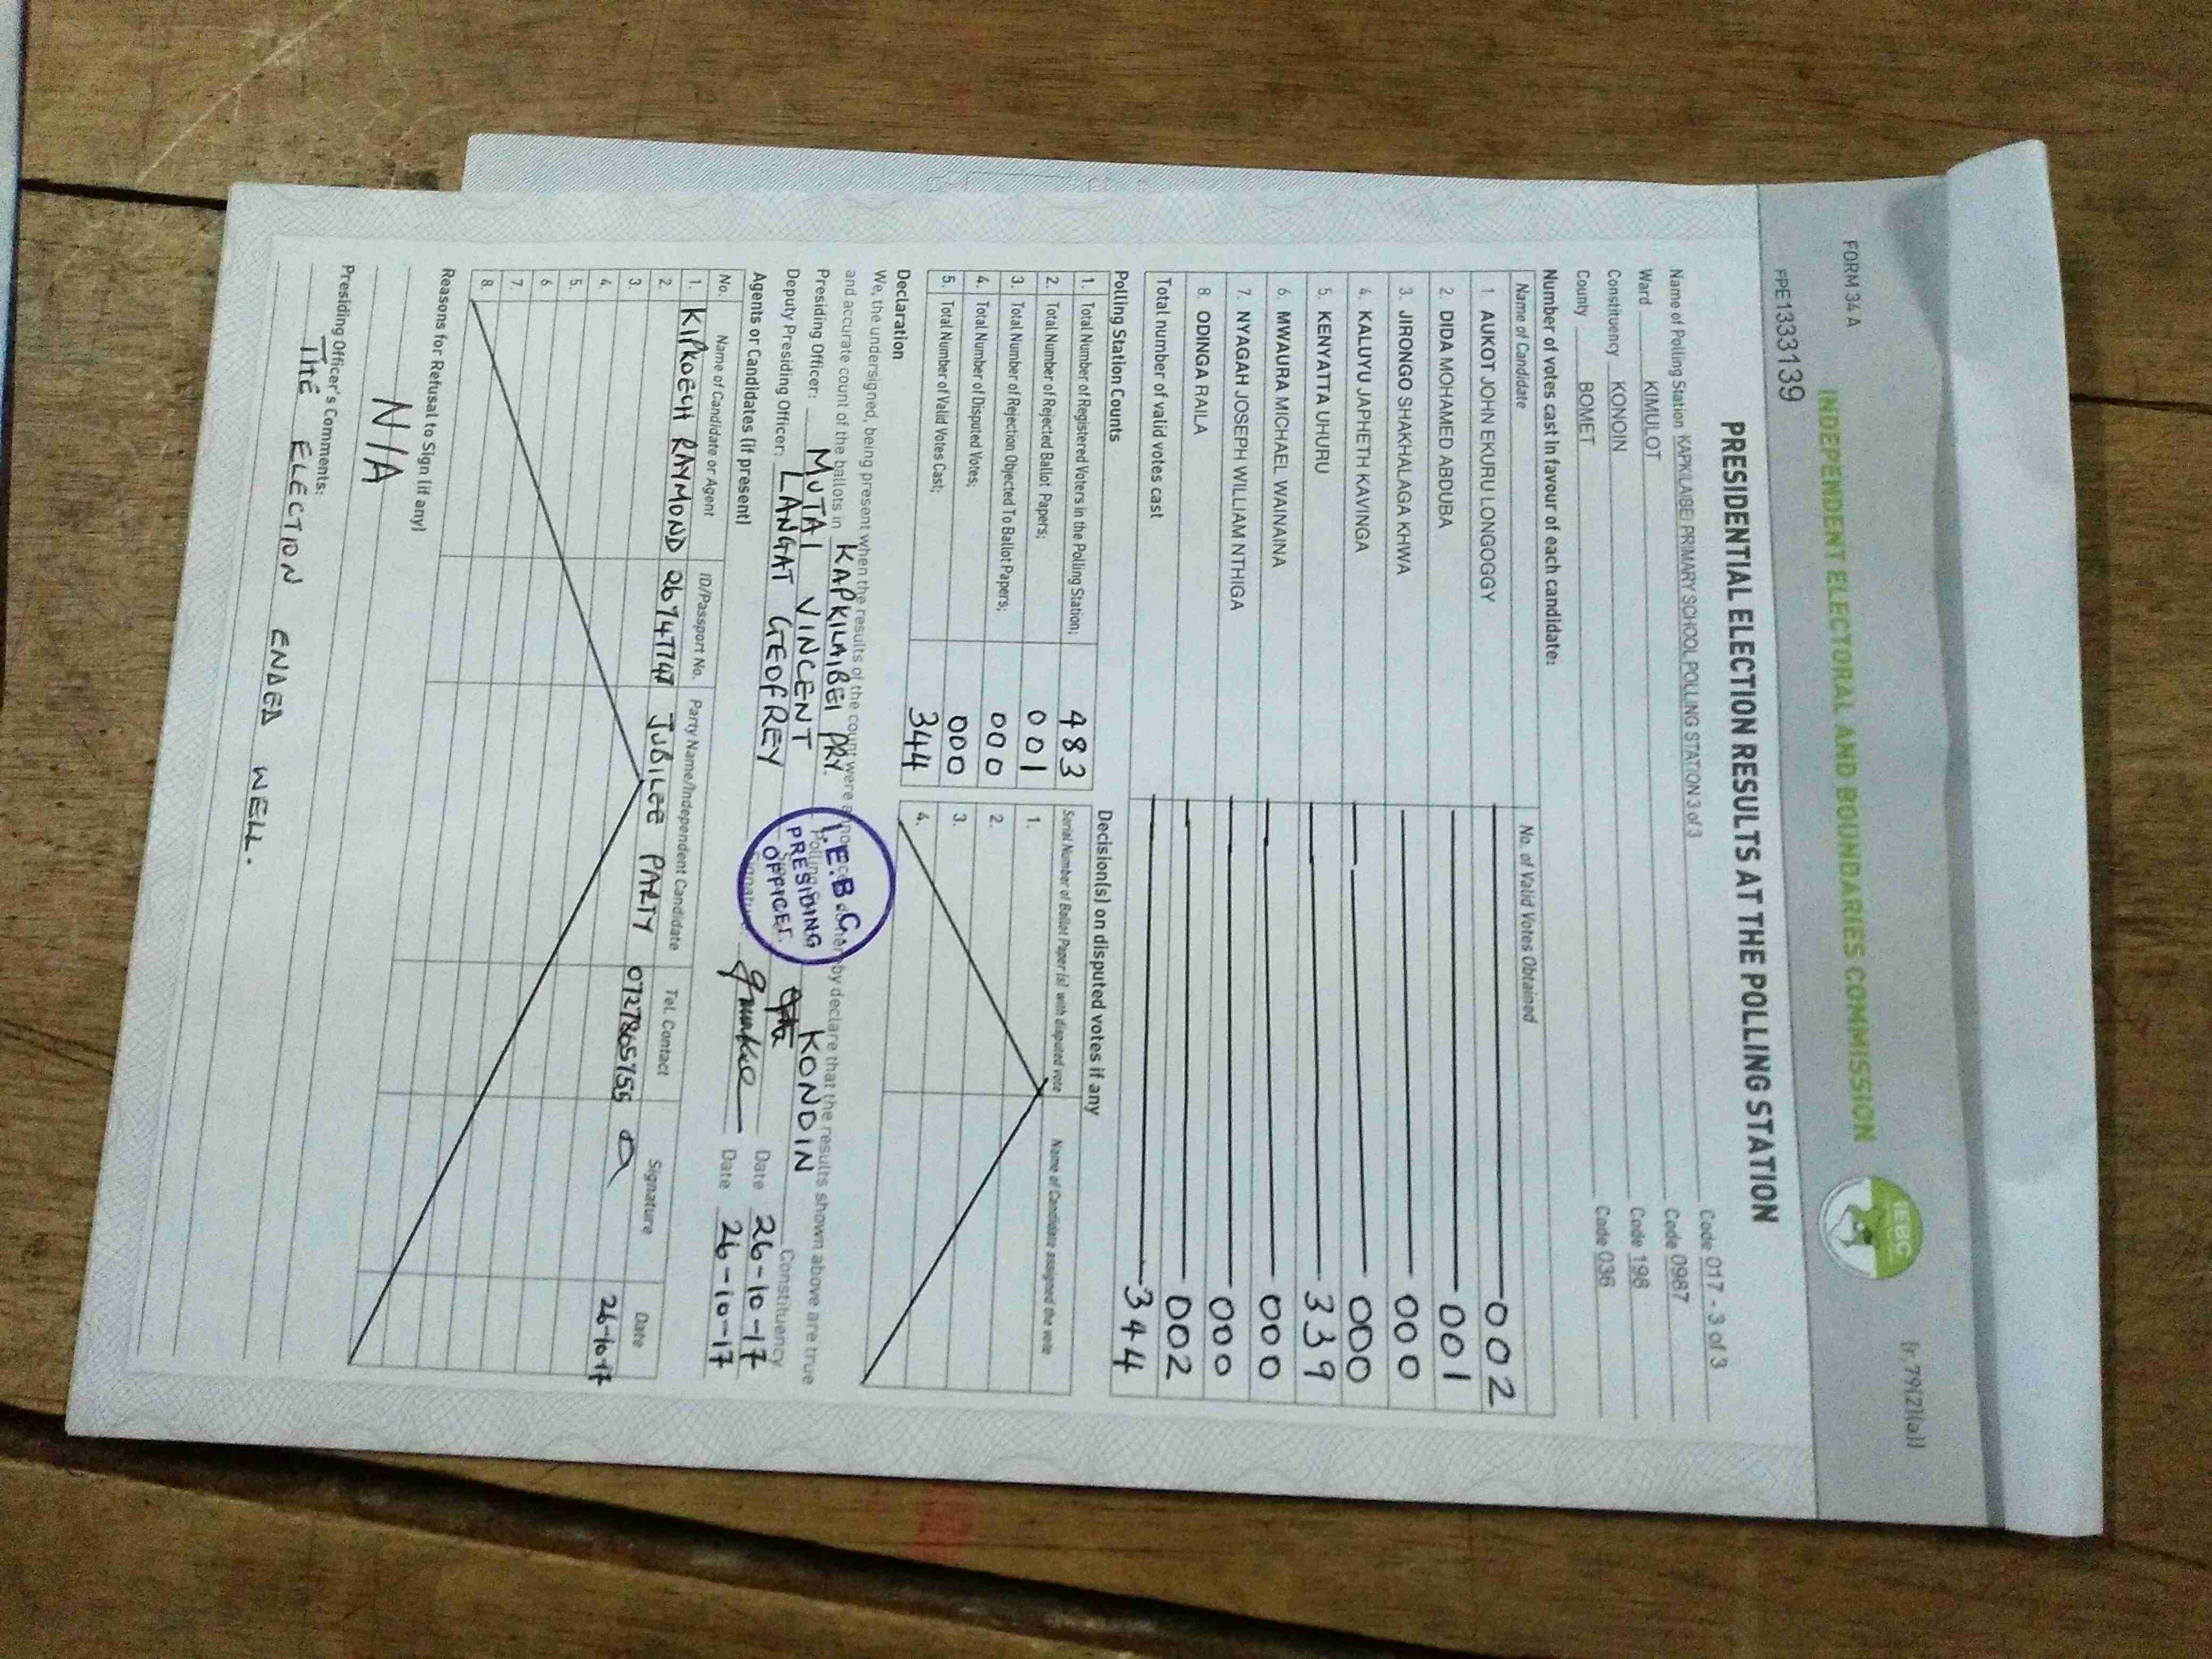 FORM 34 A
[r.79(2)(a)]
INDEPENDENT ELECTORAL AND BOUNDARIES COMMISSION
IEBC
FPE1333139
PRESIDENTIAL ELECTION RESULTS AT THE POLLING STATION
Name of Polling Station KAPKILAIBEI PRIMARY SCHOOL POLLING STATION 3 of 3 Code 017 - 3 of 3
Ward KIMULOT Code 0987
Constituency KONOIN Code 198
County BOMET Code 036
Number of votes cast in favour of each candidate:
Name of Candidate No. of Valid Votes Obtained
1 AUKOT JOHN EKURU LONGOGGY 002
2. DIDA MOHAMED ABDUBA 001
3. JIRONGO SHAKHALAGA KHWA 000
4. KALUYU JAPHETH KAVINGA 000
5. KENYATTA UHURU 339
6. MWAURA MICHAEL WAINAINA 000
7. NYAGAH JOSEPH WILLIAM NTHIGA 000
8. ODINGA RAILA 002
Total number of valid votes cast 344
Polling Station Counts
1. Total Number of Registered Voters in the Polling Station; 483
2. Total Number of Rejected Ballot Papers; 001
3. Total Number of Rejection Objected To Ballot Papers; 000
4. Total Number of Disputed Votes; 000
5. Total Number of Valid Votes Cast; 344
Decision(s) on disputed votes if any
Serial Number of Ballot Paper (s) with disputed vote Name of Candidate assigned the vote
1.
2.
3.
4.
Declaration
We, the undersigned, being present when the results of the count were announced, do hereby declare that the results shown above are true
and accurate count of the ballots in KAPKILAIBEI PRY. Polling KONOIN Constituency
Presiding Officer: MUTAI VINCENT Date 26-10-17
Deputy Presiding Officer: LANGAT GEOFREY Signature Date 26-10-17
I.E.B.C
PRESIDING
OFFICER
Agents or Candidates (if present)
No. Name of Candidate or Agent ID/Passport No. Party Name/Independent Candidate Tel. Contact Signature Date
1. KIPKOECH RAYMOND JUBILEE PARTY 26-10-17
2.
3.
4.
5.
6.
7.
8.
Reasons for Refusal to Sign (if any)
N/A
Presiding Officer's Comments:
THE ELECTION ENDED WELL.